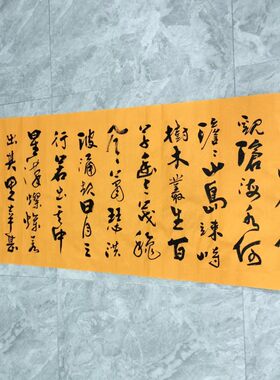 觀滄海水何
澹〻山島竦峙
樹木叢生百
草豐茂秋
風蕭瑟洪
波涌起日月之
行若出其中
星漢燦爛若
出其里幸甚